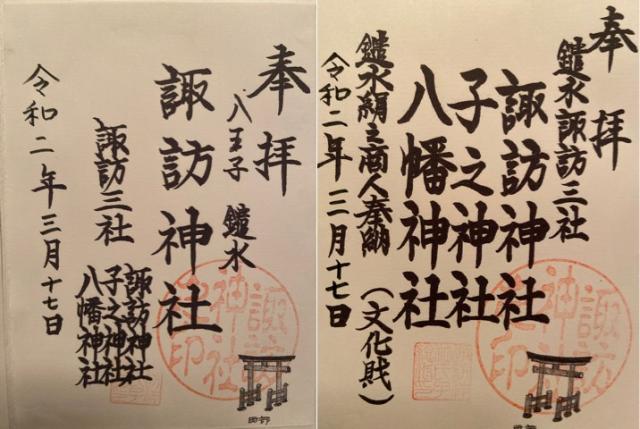 奉拝
八王子 鑓水
諏訪神社
諏訪三社
諏訪神社
子之神社
八幡神社
令和二年三月十七日
諏訪
神社
之印
奉拝
鑓水諏訪三社
諏訪神社
子之神社
八幡神社
鑓水絹之商人奉納(文化財)
令和二年三月十七日
諏訪
神社
之印